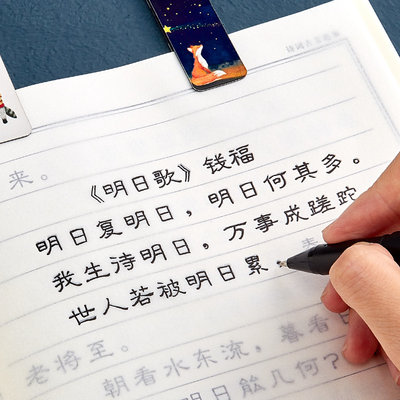 来。
《明日歌》钱福
明日复明日，明日何其多。
我生诗明日，万事成蹉跎
世人若被明日累，春
老将至。
朝看水东流，暮看日
明日能几何？